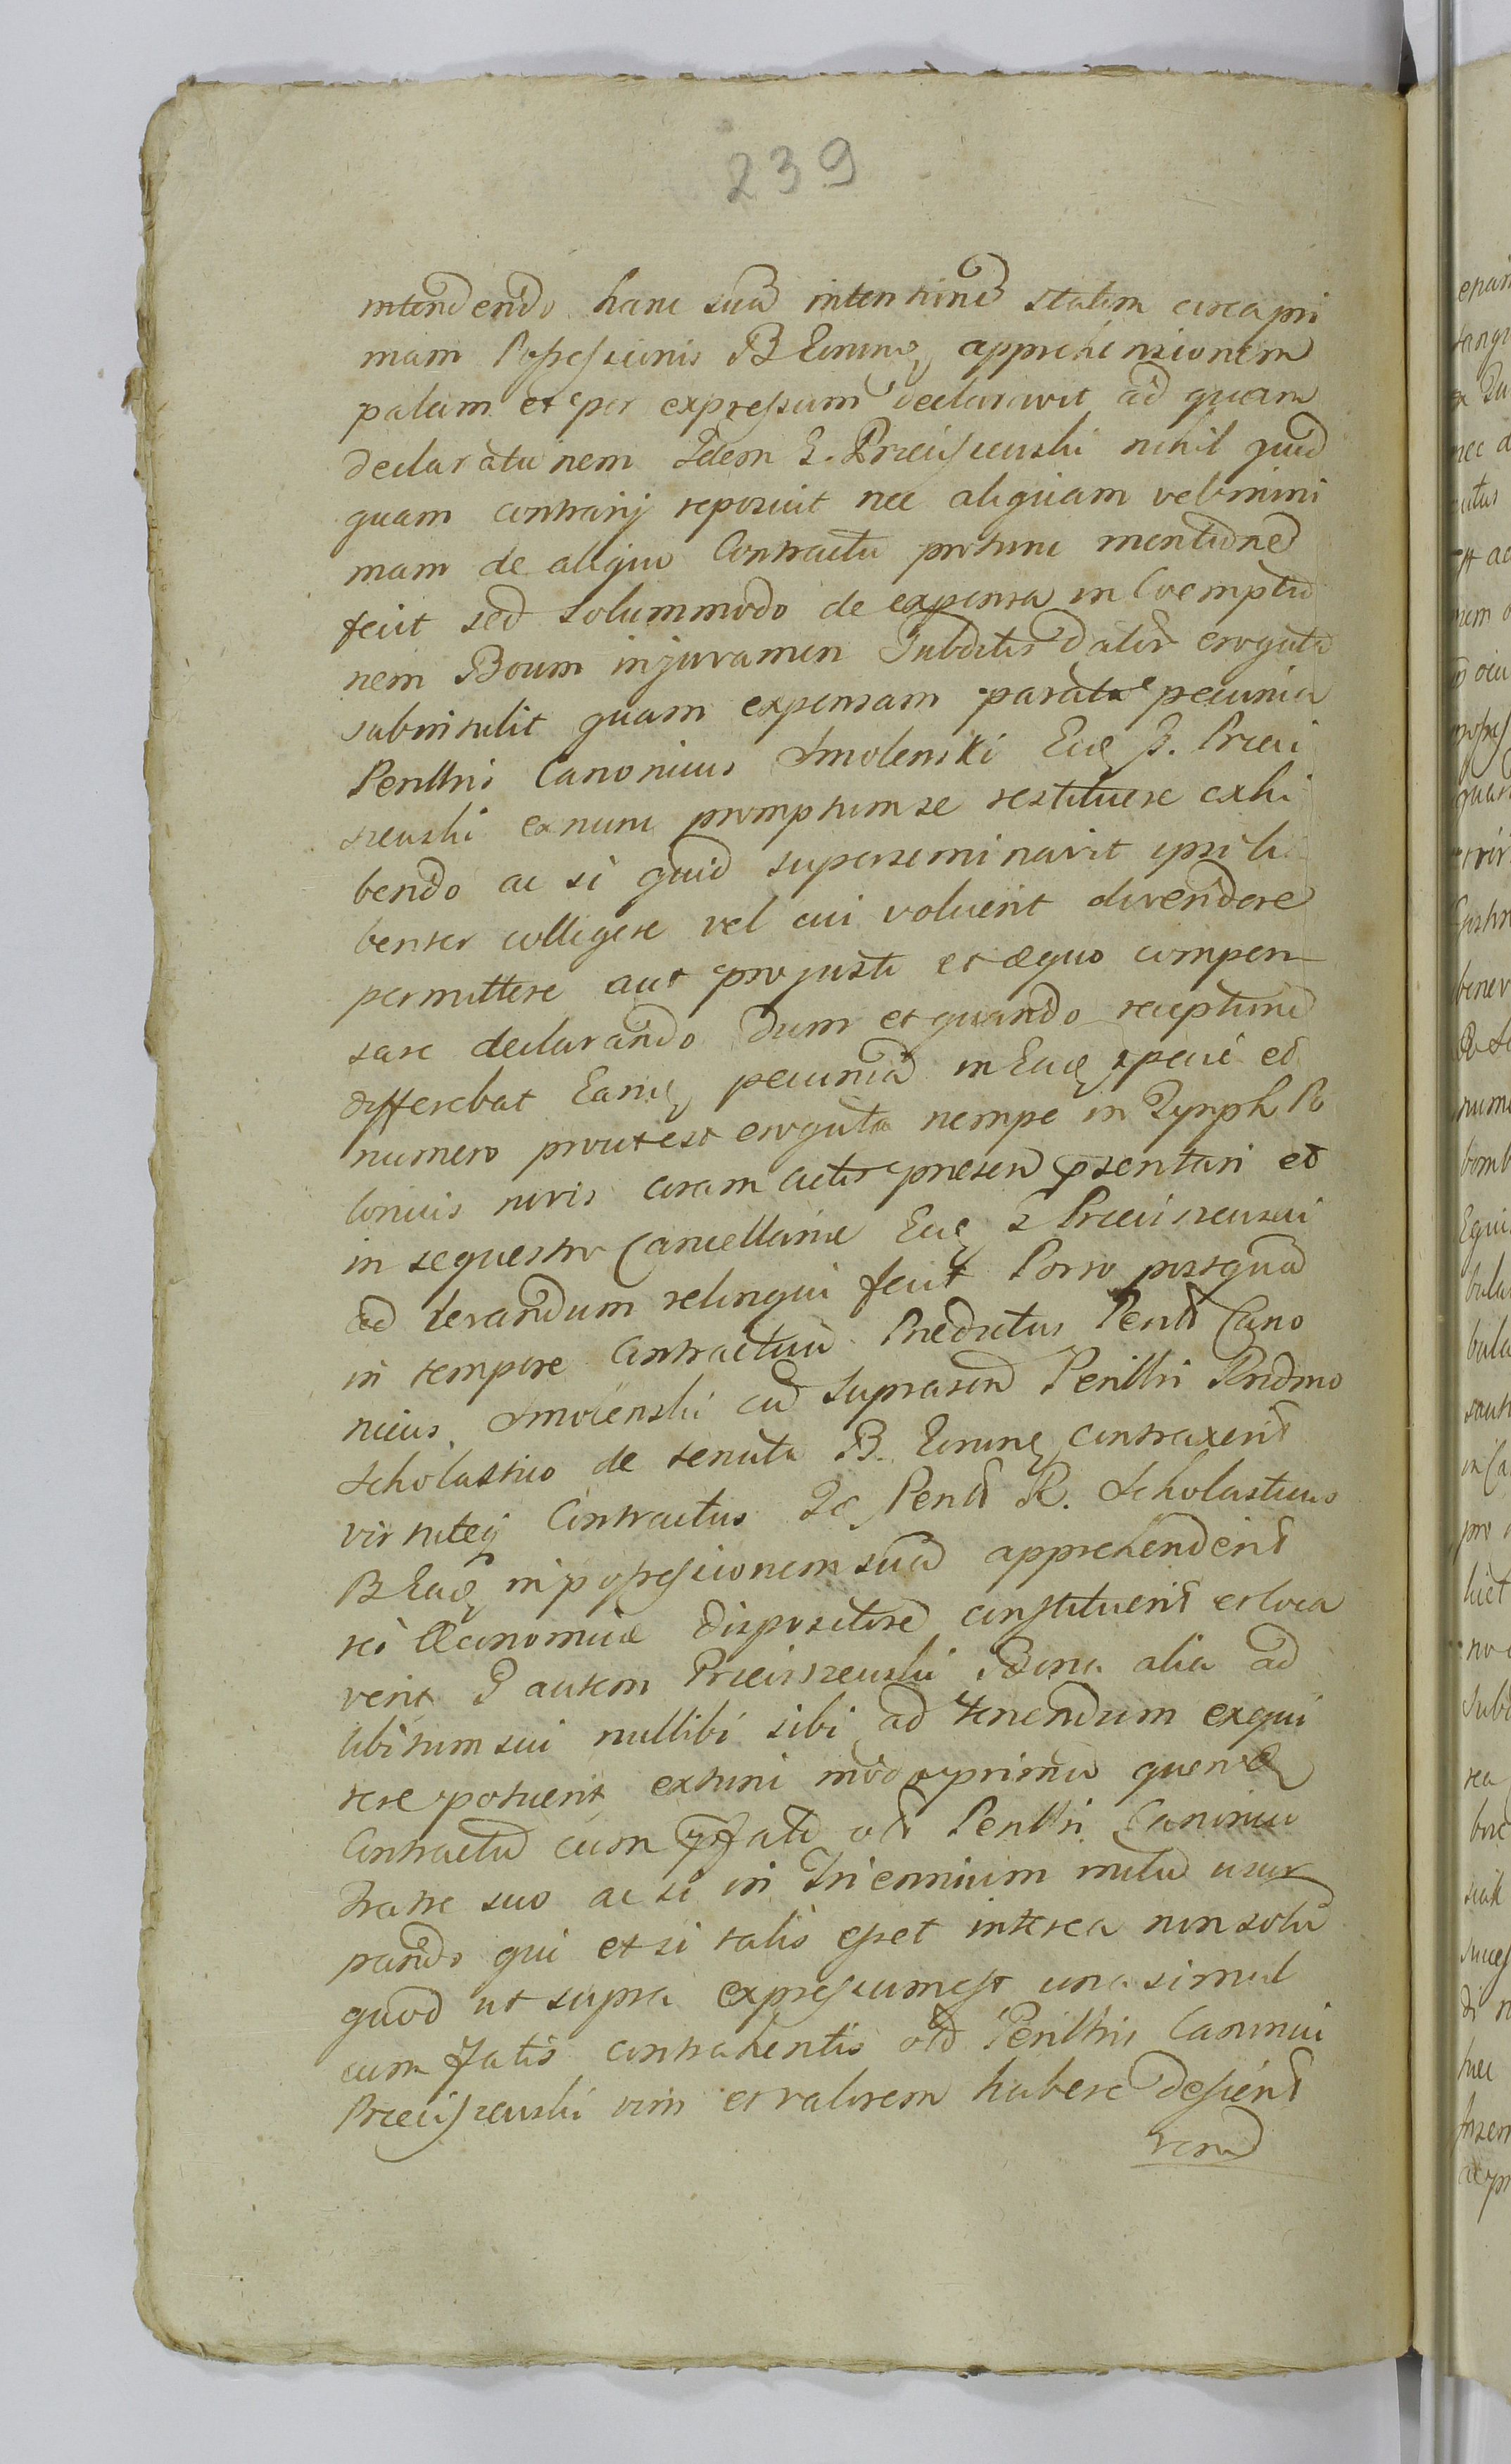 239
intendendo hanc suã intentionẽ statim circa pri
mam Possessionis B Eorunq apprehensionem
palam et per expressum declaravit ad quam
declarationem Idem G. Przeciszewski nihil quid
quam contrarij reposuit nec aliquam vel mini
mam de aliquo Contractu protunc mentionẽ
fecit sed solummodo de expensa in Coemptio
nem Boum in juvamen Subditis dator erogata
subintulit quam expensam parata pecunia
Perillris Canonicus Smolenski Eidẽ G. Przeci
szewski exnunc promptum se restituere exhi
bendo ac si quid superseminavit ipsi li
benter colligere vel cui voluerit divendere
permittere aut pro justo et æquo compen
sare declarando dum et quando receptionẽ
differebat Eanq pecuniã in Eadẽ specie et
numero prout est erogata nempe in Tynph Po
lonicis novis coram actis presen psentari et
in sequestro Cancellariæ Eidẽ G Przeciszewski
ad levandum relinqui fecit Porro postquã
in tempore Contractuũ Prædictus Perill Cano
nicus Smolenski cũ Suprascrip Perillri Rndmo
Scholastico de tenuta B. Eorunq contraxerit
virtuteq Contractus Id Perill R. Scholasticus
B Eadẽ in possessionem suã apprehenderit
sẽ Œconomiæ dispositorẽ constituerit et loca
verit G autem Przeciszewski Bona alia ad
libitum sui nullibi sibi ad tenendum exqui
rere potuerit extunc modo primũ quendã
Contractũ cum pfato olĩ Perillri Canonico
Fratre suo ac si in Triennium initũ usur
pando qui etsi talis esset interea non solũ
quod ut supra expressum est una simul
cum fatis contrahentis olĩ Perillris Canonici
Przeciszewski vim et valorem habere desierit
verũ